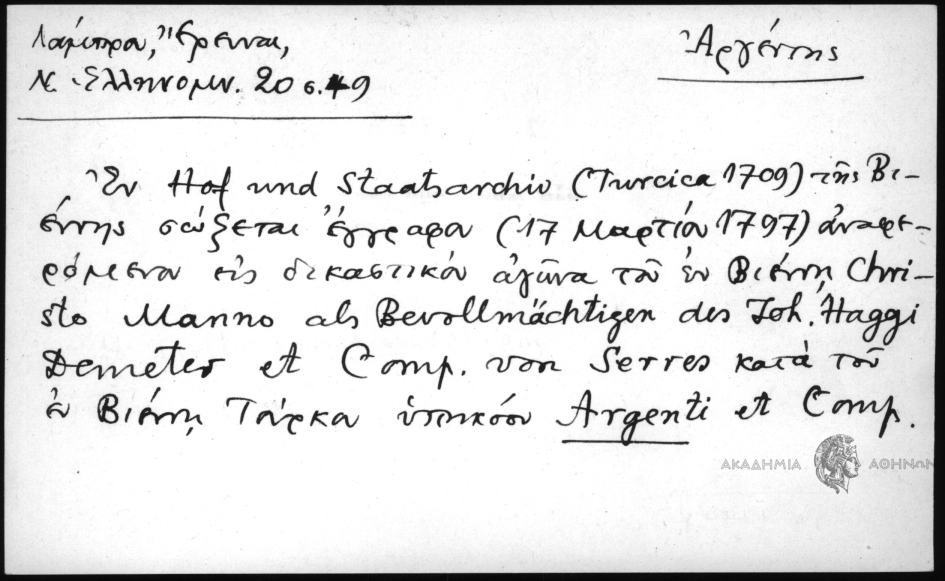 Λάμπρου, Ἔρευναι,
Ν. Ἑλληνομν. 20 σ. 49
Ἀργέντης
Ἐν Hof und Staatsarchiv (Turcica 1709) τῆς Βι-
έννης σώζεται ἔγγραφον (17 Μαρτίου 1797) ἀναφε-
ρόμενον εἰς δικαστικὸν ἀγῶνα τοῦ ἐν Βιέννῃ Chri-
sto Manno als Bevollmächtigen des Joh. Haggi
Demeter et Comp. von Serres κατὰ τοῦ
ἐν Βιέννῃ Τούρκου ὑπηκόου Argenti et Comp.
ΑΚΑΔΗΜΙΑ ΑΘΗΝΩΝ